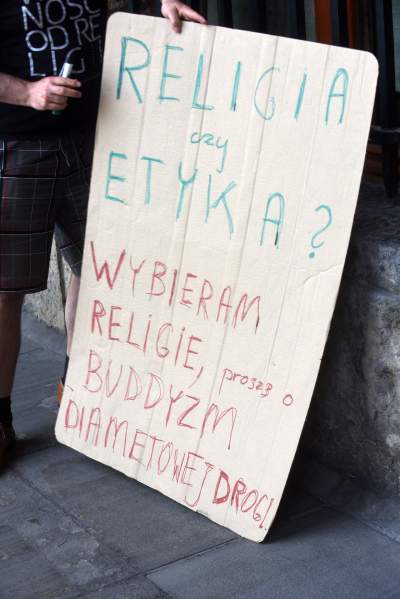 NOŚĆ
OD RE
LIGII
RELIGIA
czy
ETYKA?
WYBIERAM
RELIGIE, proszę o
BUDDYZM
DIAMETOWEJ DROGI